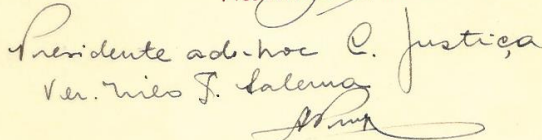 Presidente ad-hoc C. Justiça
Ver. Nilo F. Salerma